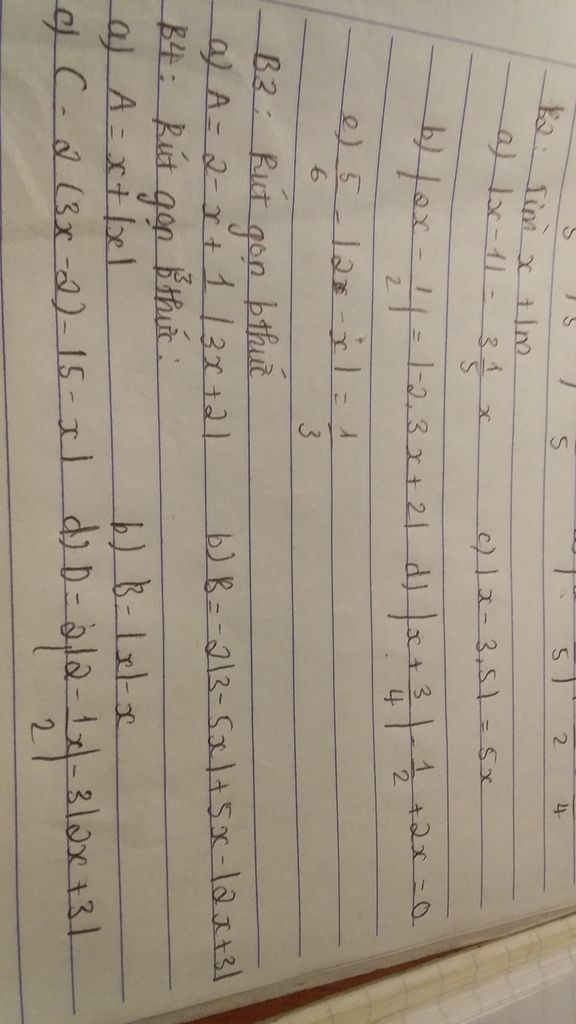 B2: Tìm x + 1m
a) |x - 1| = 3 1/5 x c) |x - 3,5| = 5x
b) |2x - 1/2| = |-2,3x + 2| d) |x + 3/4| - 1/2 + 2x = 0
e) 5/6 - |2x - x| = 1/3
B3: Rút gọn bthức
a) A = 2 - x + 1 |3x + 2| b) B = -2|3 - 5x| + 5x - |2x + 3|
B4: Rút gọn bthức:
a) A = x + |x| b) B = |x| - x
c) C = 2 (3x - 2) - |5 - x| d) D = 2|2 - 1/2 x| - 3|2x + 3|